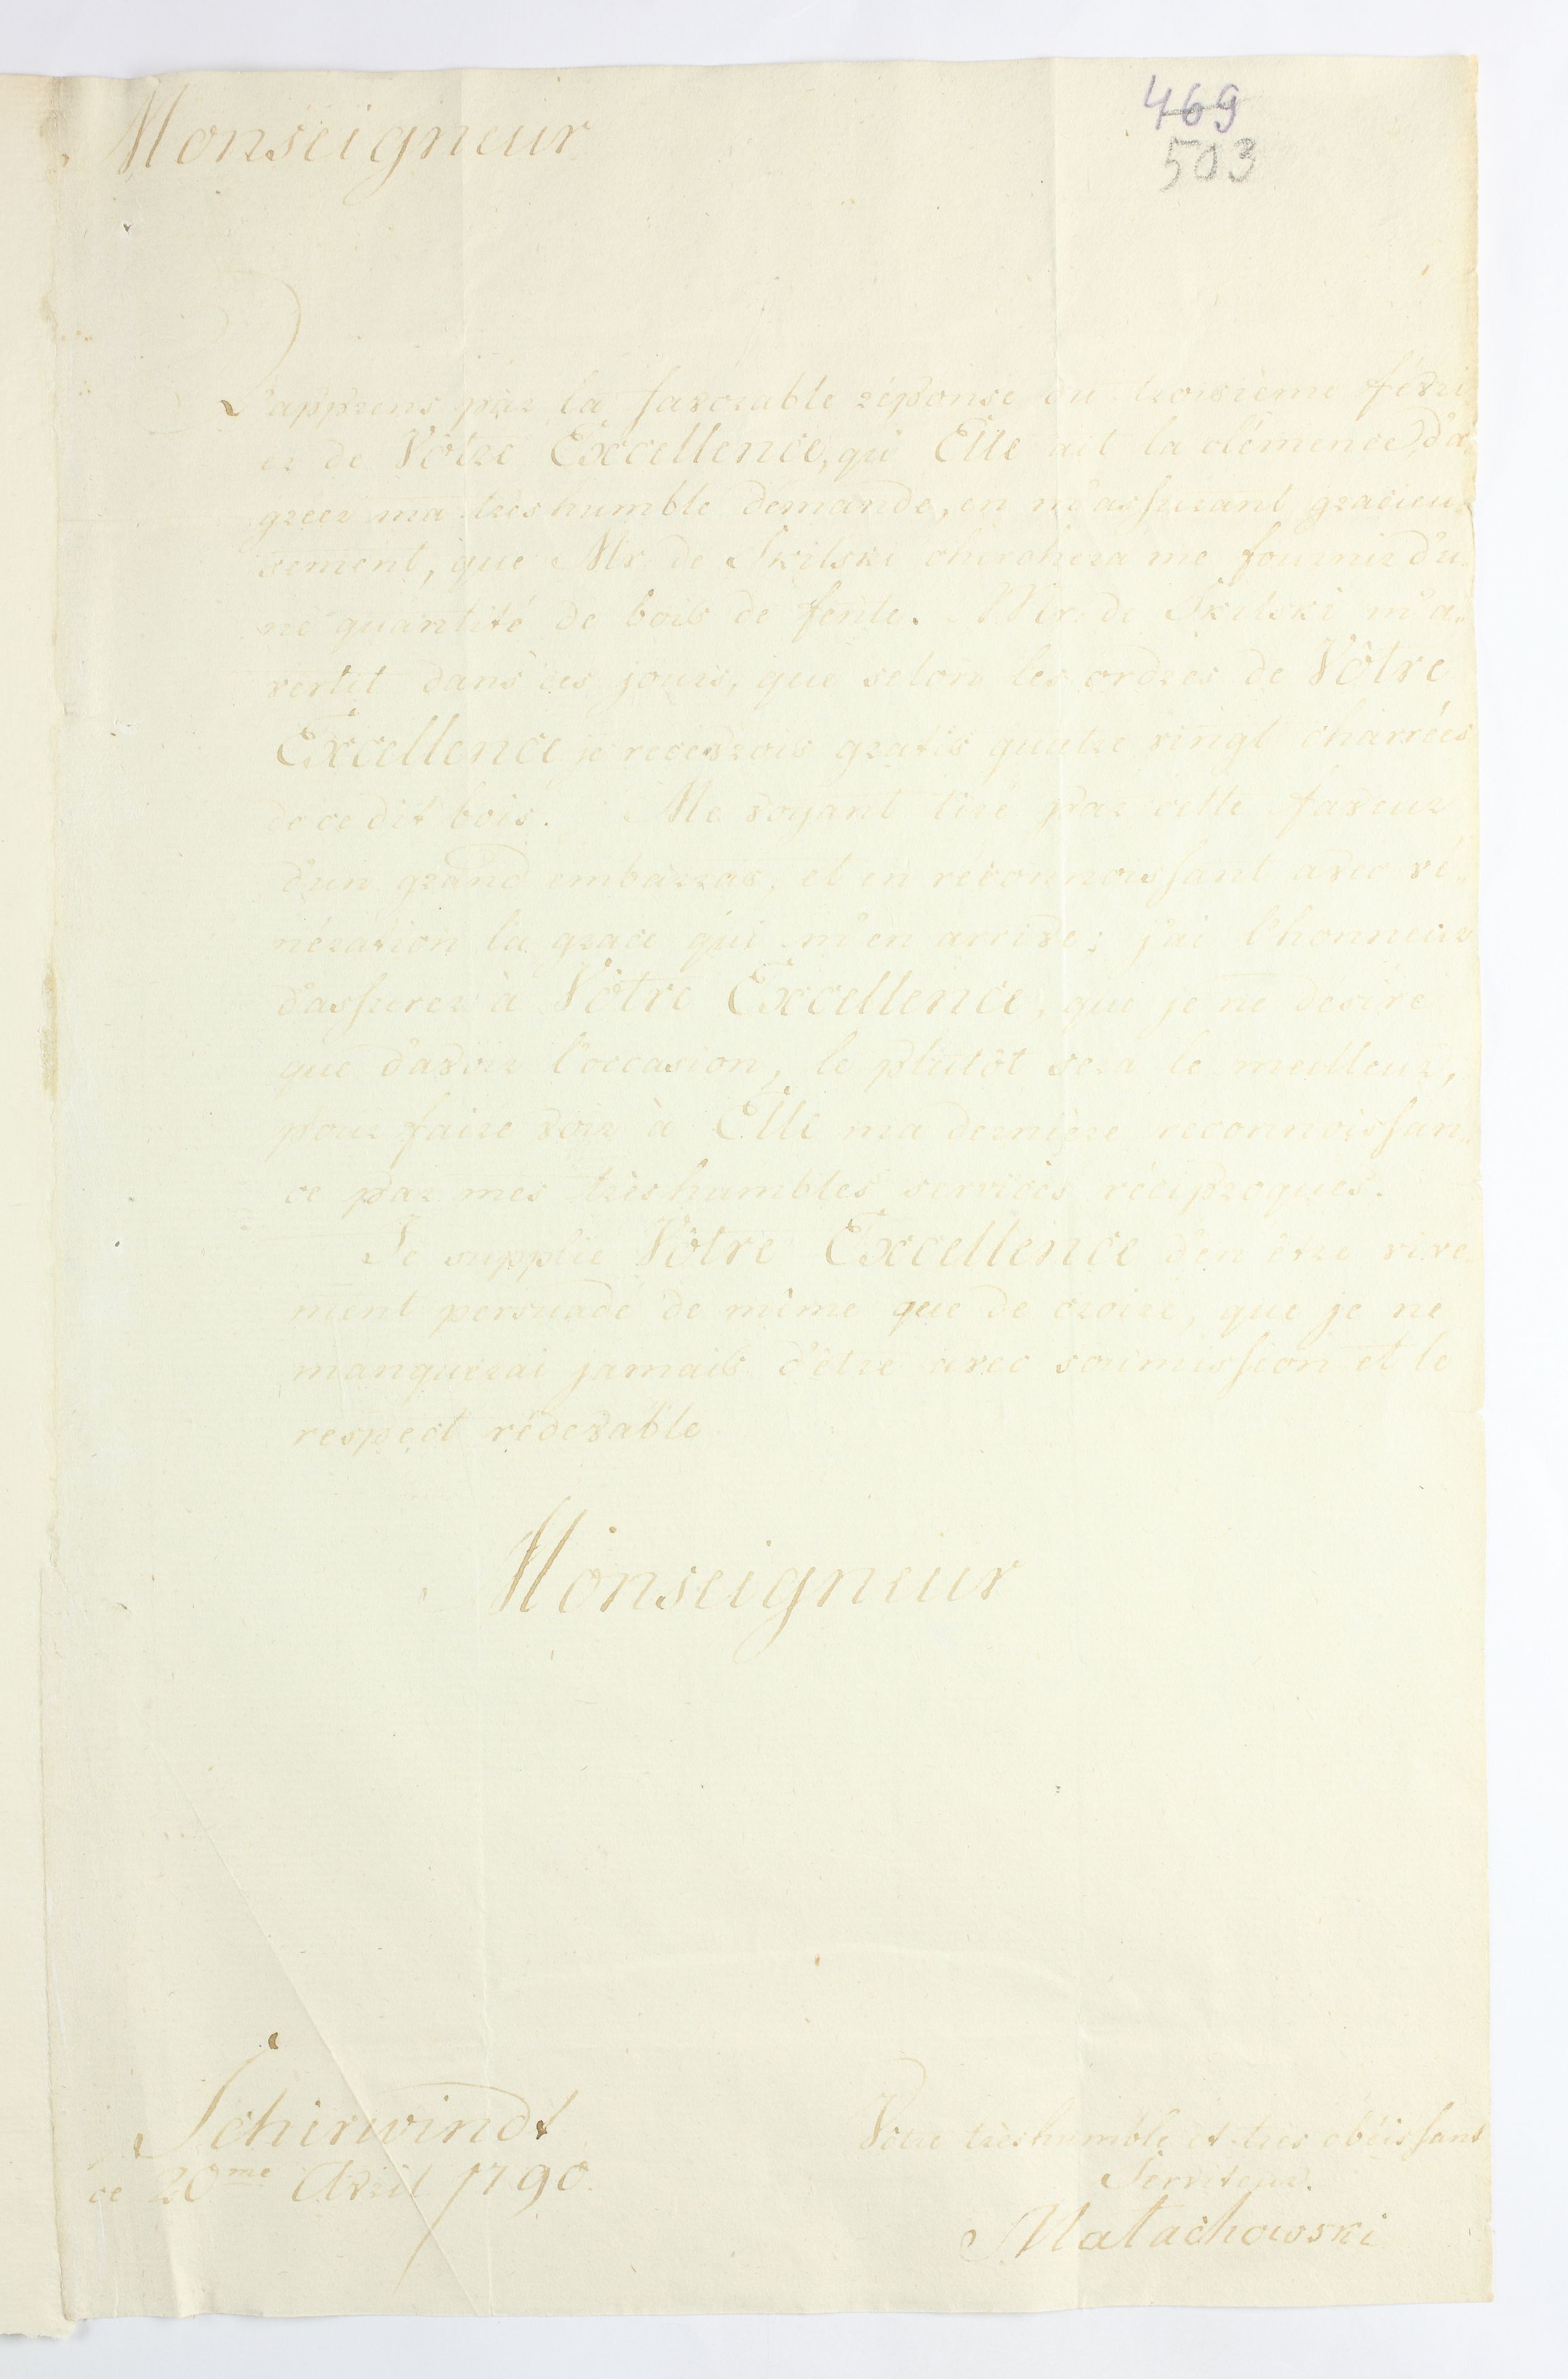 Monseigneur
469
503
J'apprens par la favorable réponse du troisième févri
er de Vôtre Excellence, qu' Elle ait la clémence, d'a„
gréer ma très humble démande, en m'assurant gracieu„
sement, que Mr. de Skilski cherchera me fournir d'u„
ne quantité de bois de fente. Mr. de Skilski m'a„
vertit dans ces jours, que selon les ordres de Vôtre
Excellence je recevrois gratis quatre vingt charrées
de ce dit bois. Me voyant tiré par cette faveur
d'un grand embarras, et en reconnoissant avec vé„
nération la grace qui m'en arrive; j'ai l'honneur
d'assurer à Vôtre Excellence, que je ne desire
que d'avoir l'occasion, le plutôt sera le meilleur,
pour faire voir à Elle ma dernière reconnoissan„
ce par mes très humbles services réciproques.
Je supplie Vôtre Excellence d'en être vive„
ment persuadé de même que de croire, que je ne
manquerai jamais d'être avec soumission et le
respect rédevable
Monseigneur
Schirwindt
ce 20me Avril 1790.
Votre très humble et très obéissant
Serviteur.
Małachowski